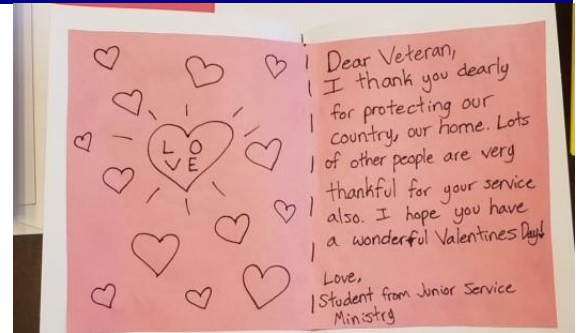 LO
VE
Dear Veteran,
I thank you dearly
for protecting our
country, our home. Lots
of other people are very
thankful for your service
also. I hope you have
a wonderful Valentines Day!
Love,
Student from Junior Service
Ministry